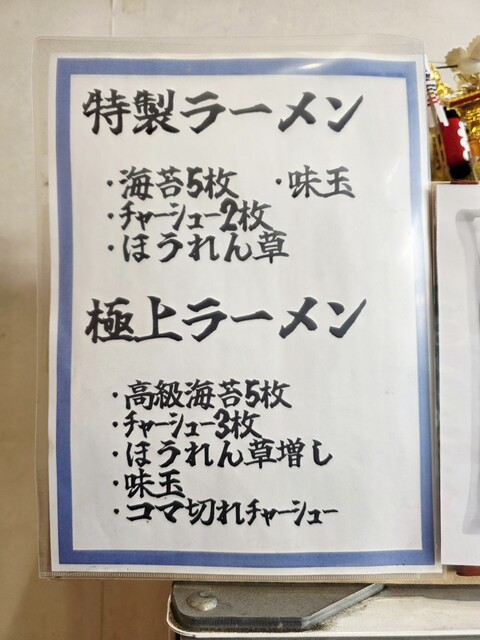 特製ラーメン
・海苔5枚 ・味玉
・チャーシュー2枚
・ほうれん草
極上ラーメン
・高級海苔5枚
・チャーシュー3枚
・ほうれん草増し
・味玉
・コマ切れチャーシュー